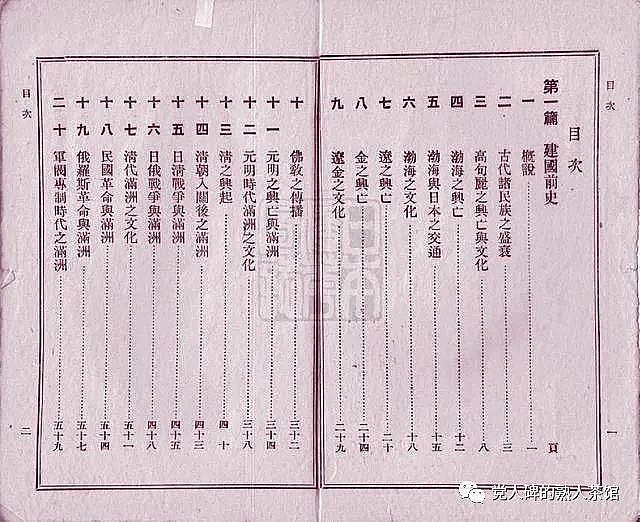 目次
一
目次
第一篇 建國前史
頁
一 概說 一
二 古代諸民族之盛衰 三
三 高句麗之興亡與文化 八
四 渤海之興亡 十二
五 渤海與日本之交通 十五
六 渤海之文化 十八
七 遼之興亡 二十
八 金之興亡 二十四
九 遼金之文化 二十九
十 佛敎之傳播 三十二
十一 元明之興亡與滿洲 三十四
十二 元明時代滿洲之文化 三十八
十三 淸之興起 四十
十四 淸朝入關後之滿洲 四十三
十五 日淸戰爭與滿洲 四十五
十六 日俄戰爭與滿洲 四十八
十七 淸代滿洲之文化 五十一
十八 民國革命與滿洲 五十四
十九 俄羅斯革命與滿洲 五十七
二十 軍閥專制時代之滿洲 五十九
目次
二
党人碑的熟人茶馆